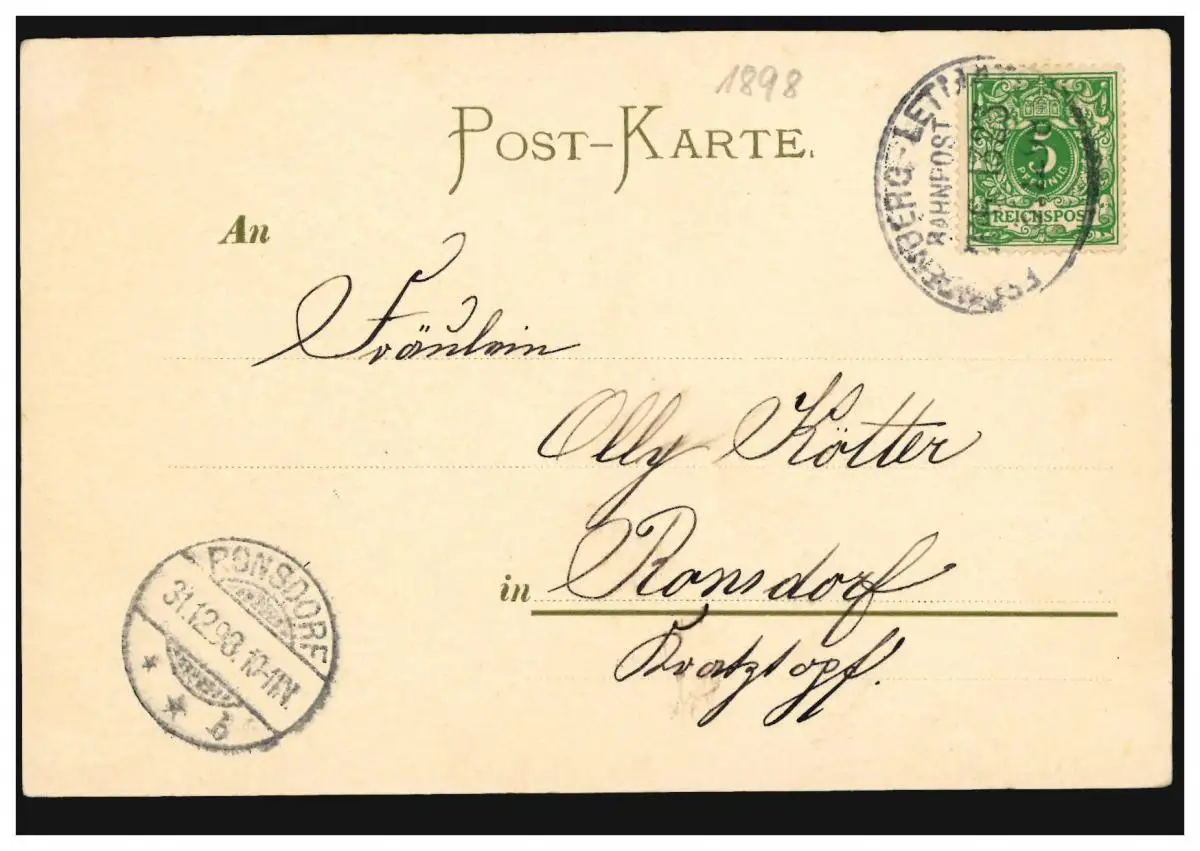 1898
POST-KARTE.
BAHNPOST
5
PFENNIG
REICHSPOST
An
Fräulein
Olly Kötter
in Ronsdorf
Kratzkopf.
RONSDORF
31.12.98.10-11N.
* * b